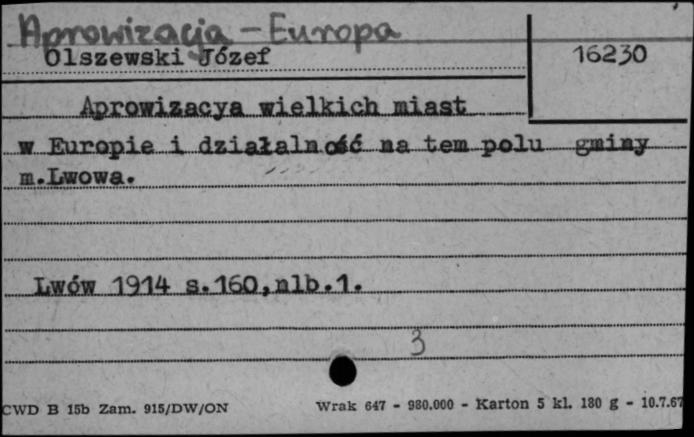 Aprowizacja - Europa
Olszewski Józef
16230
Aprowizacya wielkich miast
w Europie i działalność na tem polu gminy
m.Lwowa.
Lwów 1914 s.160,nlb.1.
3
CWD B 15b Zam. 915/DW/ON Wrak 647 - 980.000 - Karton 5 kl. 180 g - 10.7.67